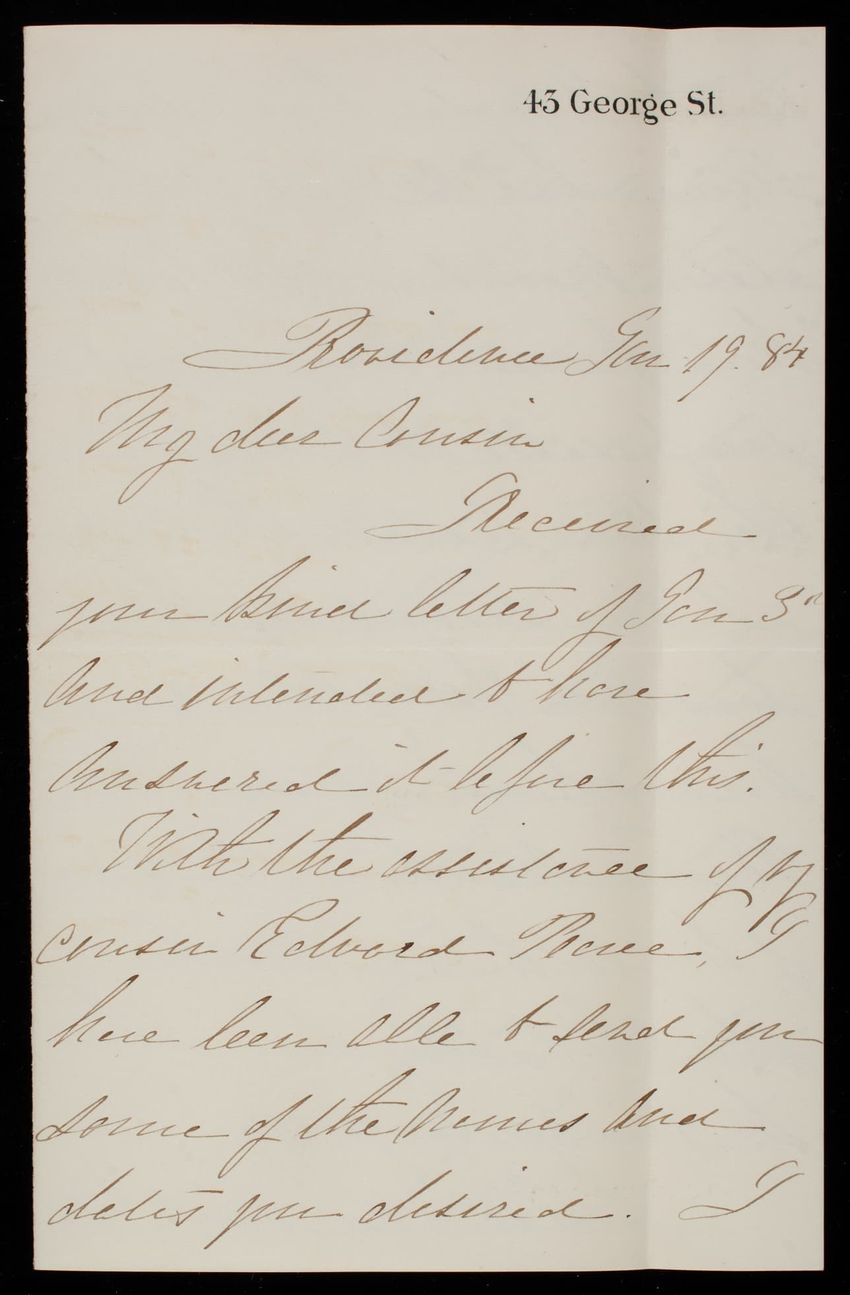 43 George St.
Providence Jan 19. 84
My dear Cousin
Received
your kind letter of Jan 3d
and intended to have
answered it before this.
With the assistance of my
cousin Edward Pearce, I
have been able to send you
some of the names and
dates you desired. I